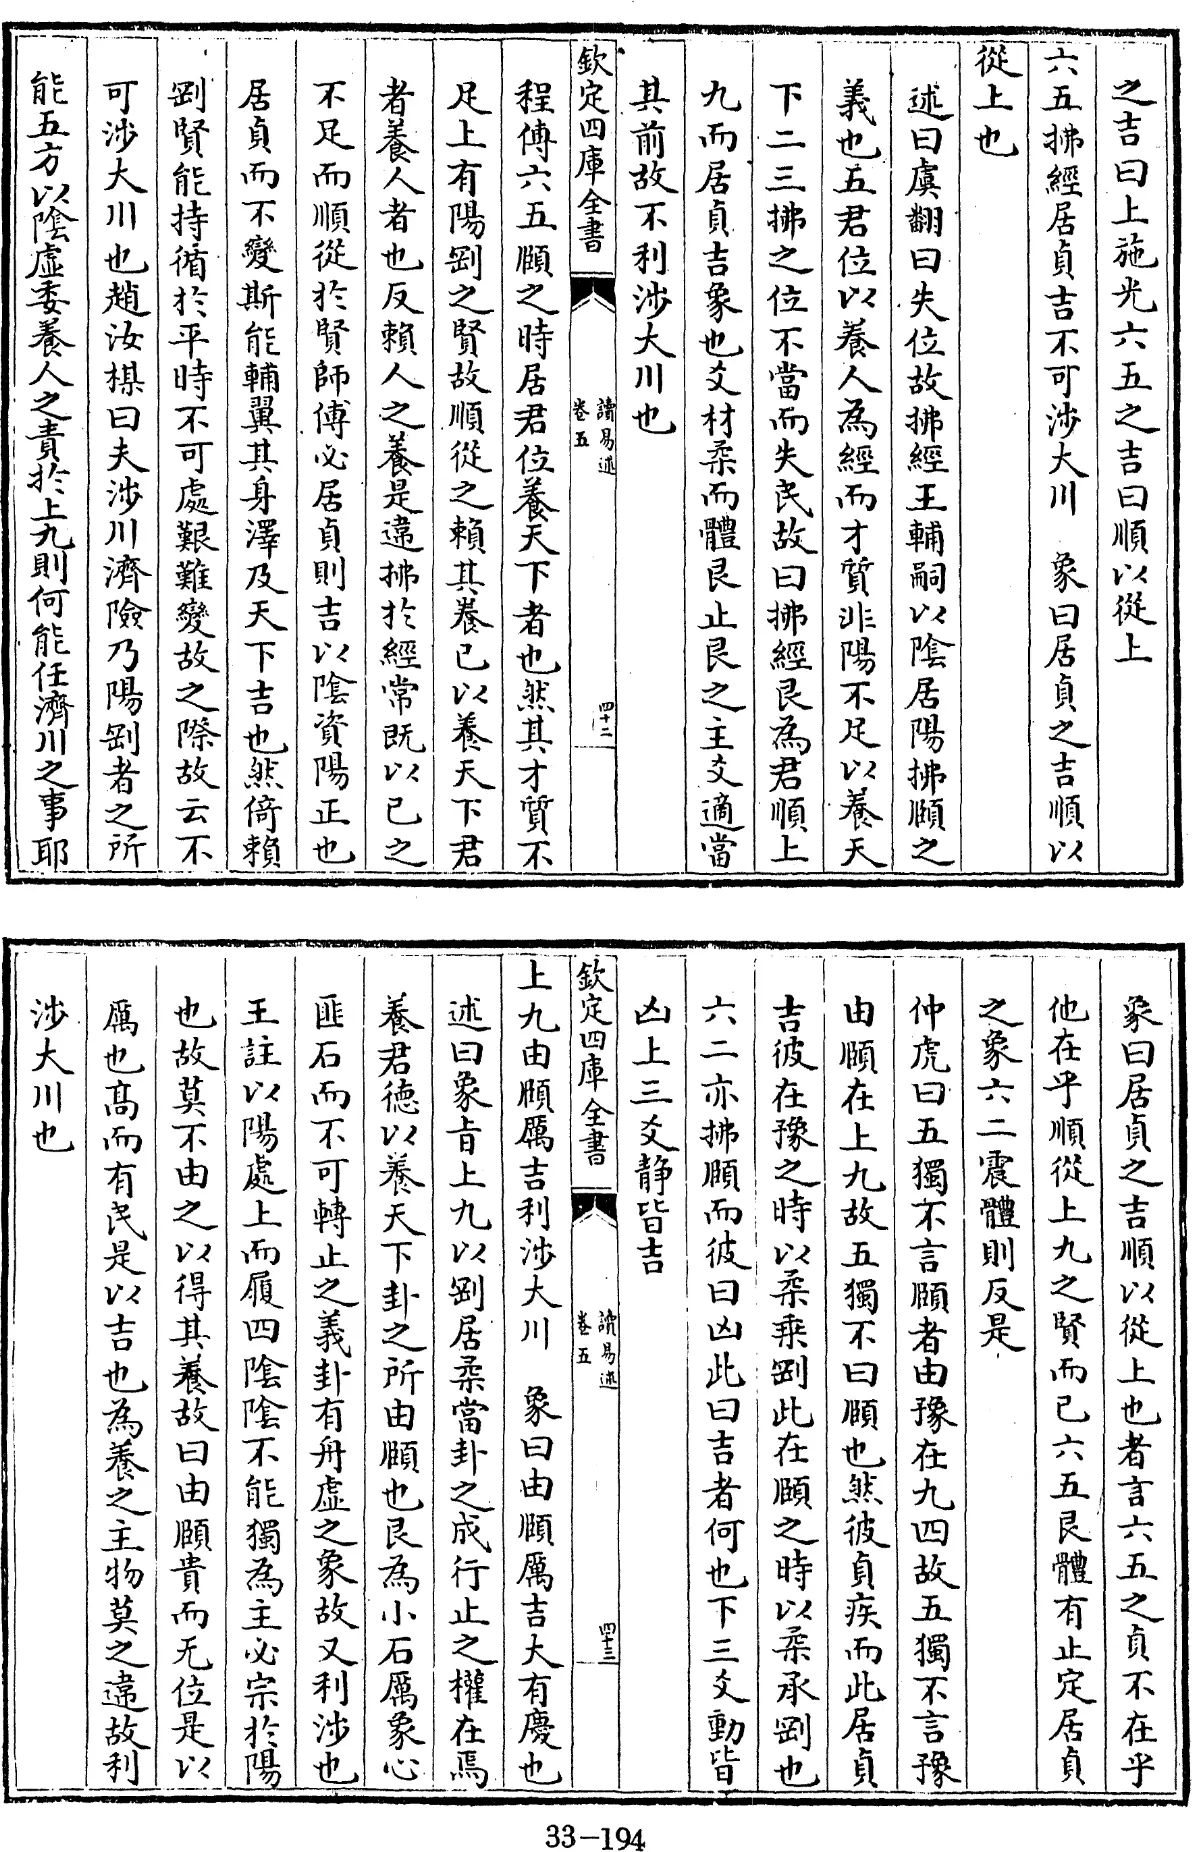 之吉曰上施光六五之吉曰順以從上
六五拂經居貞吉不可涉大川　象曰居貞之吉順以
從上也
述曰虞翻曰失位故拂經王輔嗣以陰居陽拂頤之
義也五君位以養人為經而才質非陽不足以養天
下二三拂之位不當而失民故曰拂經艮為君順上
九而居貞吉象也爻材柔而體艮止艮之主爻適當
其前故不利涉大川也
欽定四庫全書
讀易述
卷五
四十二
程傅六五頤之時居君位養天下者也然其才質不
足上有陽剛之賢故順從之賴其養已以養天下君
者養人者也反賴人之養是違拂於經常既以已之
不足而順從於賢師傅必居貞則吉以陰資陽正也
居貞而不變斯能輔翼其身澤及天下吉也然倚賴
剛賢能持循於平時不可處艱難變故之際故云不
可涉大川也趙汝楳曰夫涉川濟險乃陽剛者之所
能五方以陰虛委養人之責於上九則何能任濟川之事耶
象曰居貞之吉順以從上也者言六五之貞不在乎
他在乎順從上九之賢而已六五艮體有止定居貞
之象六二震體則反是
仲虎曰五獨不言頤者由豫在九四故五獨不言豫
由頤在上九故五獨不曰頤也然彼貞疾而此居貞
吉彼在豫之時以柔乘剛此在頤之時以柔承剛也
六二亦拂頤而彼曰凶此曰吉者何也下三爻動皆
凶上三爻静皆吉
欽定四庫全書
讀易述
卷五
四十三
上九由頤厲吉利涉大川　象曰由頤厲吉大有慶也
述曰象旨上九以剛居柔當卦之成行止之權在焉
養君德以養天下卦之所由頤也艮為小石厲象心
匪石而不可轉止之義卦有舟虛之象故又利涉也
王註以陽處上而履四陰陰不能獨為主必宗於陽
也故莫不由之以得其養故曰由頤貴而无位是以
厲也高而有民是以吉也為養之主物莫之違故利
涉大川也
33-194